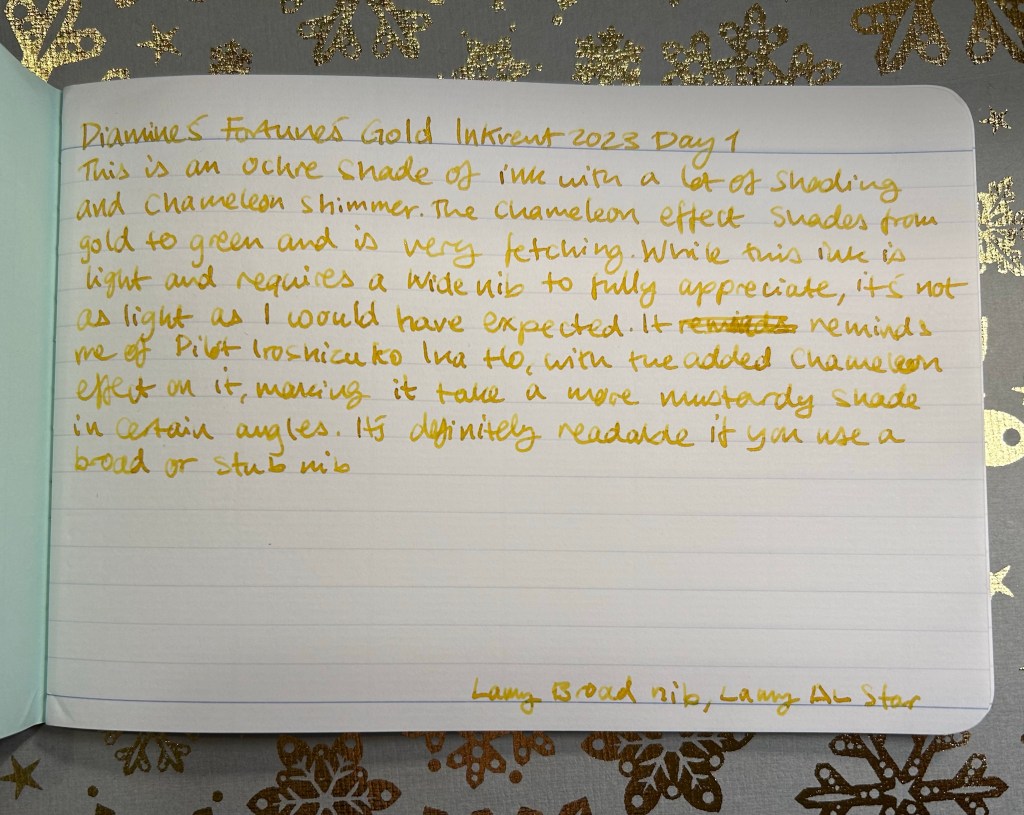 Diamine's Fortune's Gold Inkvent 2023 Day 1
This is an ochre shade of ink with a lot of shading
and chameleon shimmer. The chameleon effect shades from
gold to green and is very fetching. While this ink is
light and requires a wide nib to fully appreciate, it's not
as light as I would have expected. It reminds reminds
me of Pilot Iroshizuko Ina Ho, with the added chameleon
effect on it, making it take a more mustardy shade
in certain angles. It's definitely readable if you use a
broad or stub nib
Lamy Broad nib, Lamy AL Star